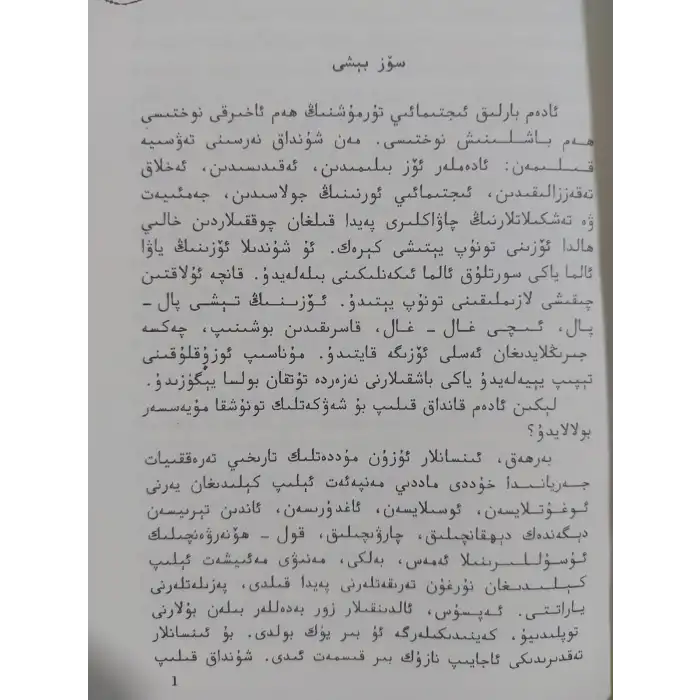 سۆز بېشى
ئادەم بارلىق ئىجتىمائىي تۇرمۇشنىڭ ھەم ئاخىرقى نوختىسى
ھەم باشلىنىش نوختىسى. مەن شۇنداق نەرسىنى تەۋسىيە
قىلىمەن: ئادەملەر ئۆز بىلىمىدىن، ئەقىدىسىدىن، ئەخلاق
تەقەززالىقىدىن، ئىجتىمائىي ئورنىنىڭ جولاسىدىن، جەمئىيەت
ۋە تەشكىلاتلارنىڭ چاۋاكلىرى پەيدا قىلغان چوققىلاردىن خالىي
ھالدا ئۆزىنى تونۇپ يېتىشى كېرەك. ئۇ شۇندىلا ئۆزىنىڭ ياۋا
ئالما ياكى سورتلۇق ئالما ئىكەنلىكىنى بىلەلەيدۇ. قانچە ئۇلاقتىن
چىقىشى لازىملىقىنى تونۇپ يېتىدۇ. ئۆزىنىڭ تېشى پال -
پال، ئىچى غال - غال، قاسرىقىدىن بوشىنىپ، چەكسە
جىرىڭلايدىغان ئەسلى ئۆزىگە قايتىدۇ. مۇناسىپ ئوزۇقلۇقىنى
تېپىپ يېيەلەيدۇ ياكى باشقىلارنى نەزەردە تۇتقان بولسا يېگۈزىدۇ.
لېكىن ئادەم قانداق قىلىپ بۇ شەۋكەتلىك تونۇشقا مۇيەسسەر
بولالايدۇ؟
بەرھەق، ئىنسانلار ئۇزۇن مۇددەتلىك تارىخىي تەرەققىيات
جەريانىدا خۇددى ماددىي مەنپەئەت ئېلىپ كېلىدىغان يەرنى
ئوغۇتلايسەن، ئوسىلايسەن، ئاغدۇرىسەن، ئاندىن تېرىيسەن
دېگەندەك دېھقانچىلىق، چارۋىچىلىق، قول - ھۆنەرۋەنچىلىك
ئۇسۇللىرىنىلا ئەمەس، بەلكى، مەنىۋى مەئىيشەت ئېلىپ
كېلىدىغان نۇرغۇن تەرىقەتلەرنى پەيدا قىلدى، پەزىلەتلەرنى
ياراتتى. ئەپسۇس، ئالدىنقىلار زور بەدەللەر بىلەن بۇلارنى
توپلىدىيۇ، كەينىدىكىلەرگە ئۇ بىر يۈك بولدى. بۇ ئىنسانلار
تەقدىرىدىكى ئاجايىپ نازۇك بىر قىسمەت ئىدى. شۇنداق قىلىپ
1